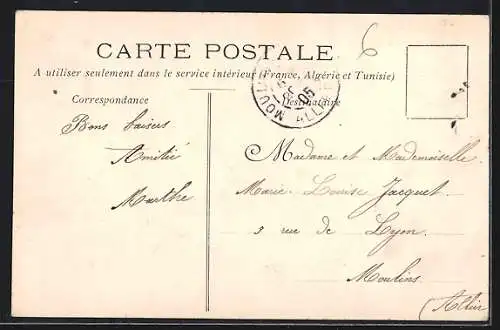 6
CARTE POSTALE
A utiliser seulement dans le service intérieur (France, Algérie et Tunisie)
Correspondance
Destinataire
MOULINS ALLIER
05
Bons baisers
Amitié
Marthe
Madame et Mademoiselle
Marie-Louise Jacquet
5 rue de Lyon
Moulins
(Allier